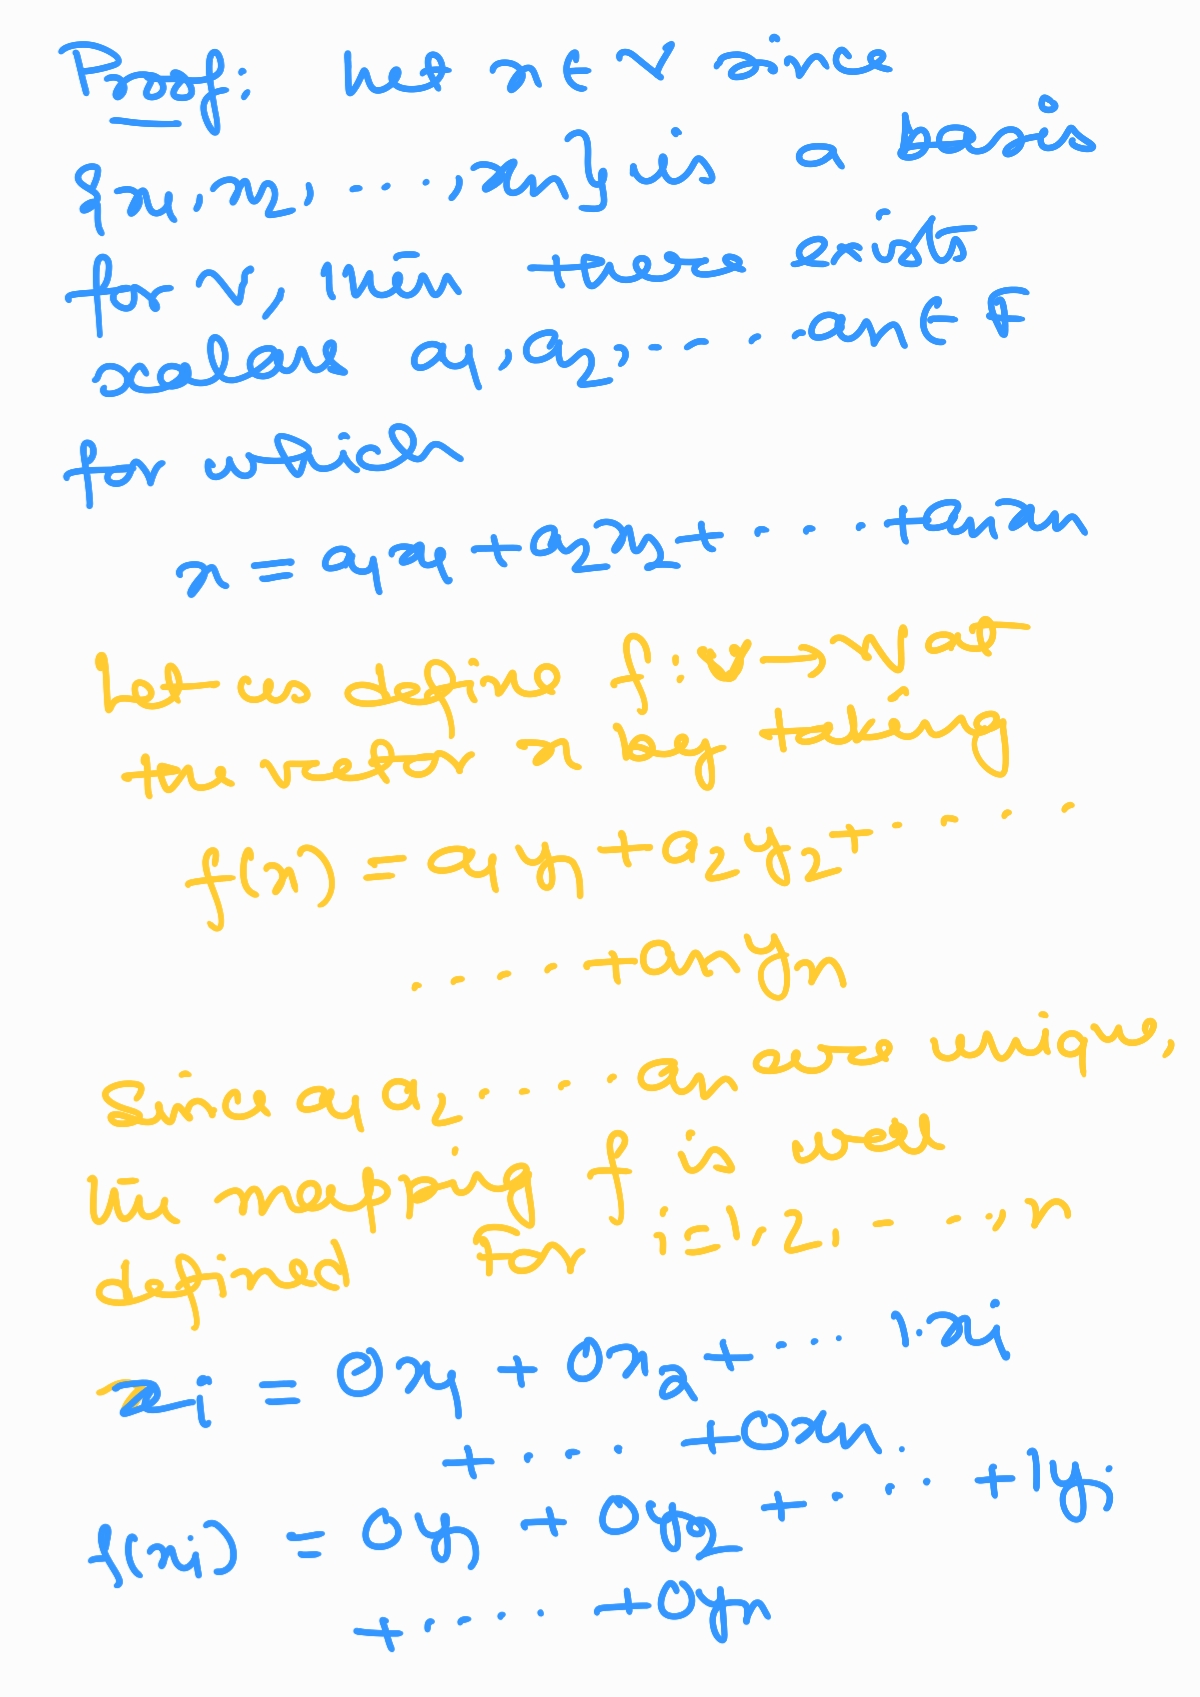 Proof: Let x ∈ V since
{x1, x2, ..., xn} is a basis
for V, then there exists
scalars a1, a2, ..... an ∈ F
for which
x = a1x1 + a2x2 + .... + anxn
Let us define f: V → V at
the vector x by taking
f(x) = a1y1 + a2y2 + .....
.... + anyn
Since a1 a2 .... an are unique,
the mapping f is well
defined For i=1, 2, - ..., n
xi = 0x1 + 0x2 + ... 1.xi
+ ... + 0xn.
f(xi) = 0y1 + 0y2 + .... + 1yi
+ .... + 0yn